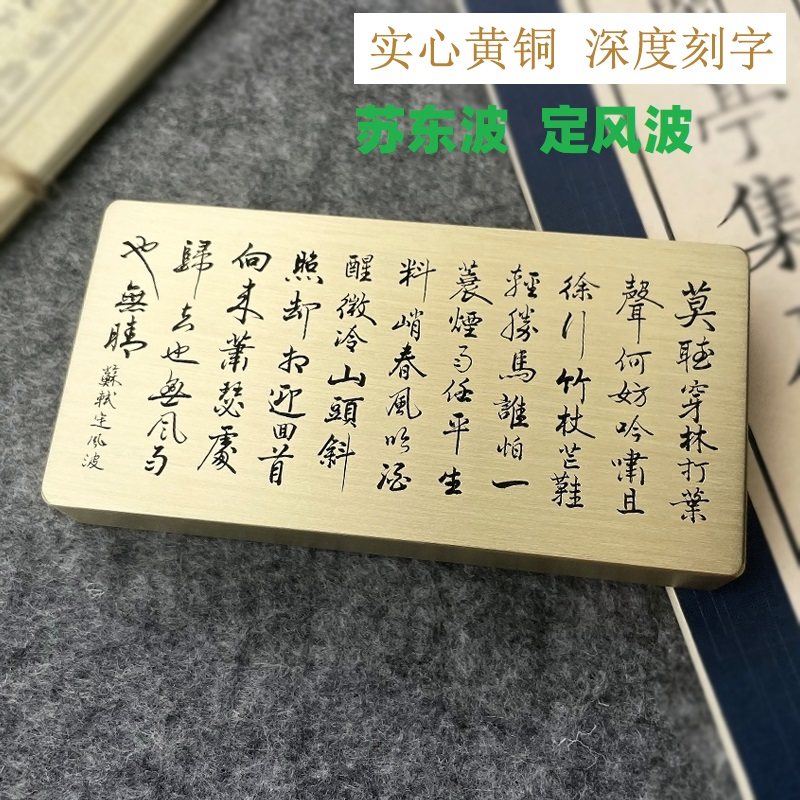 实心黄铜 深度刻字
苏东波 定风波
莫聴穿林打葉
聲何妨吟嘯且
徐行竹杖芒鞋
輕勝馬誰怕一
蓑煙雨任平生
料峭春風吹酒
醒微冷山頭斜
照却相迎回首
向来蕭瑟處
歸去也無風雨
也無晴
蘇軾定風波
亭集